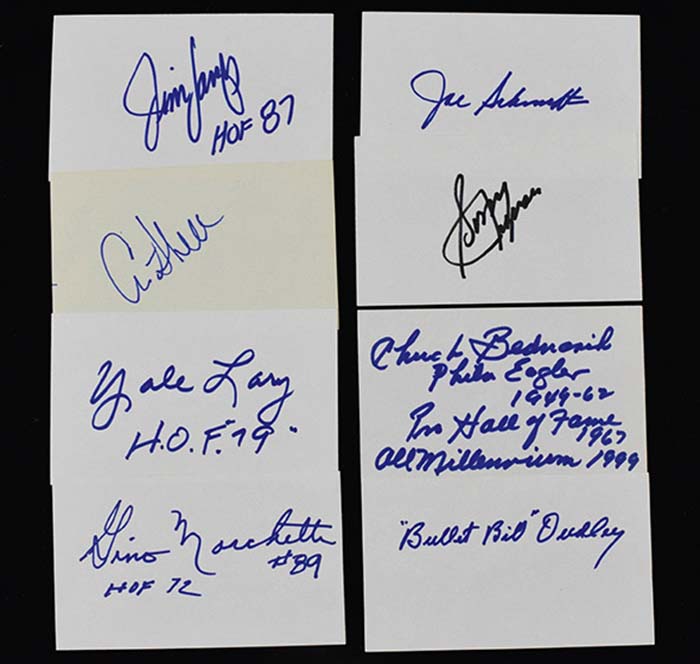 Jim Langer
HOF 87
A. Shell
Yale Lary
H.O.F. "79"
Gino Marchetti
#89
HOF 72
Joe Schmidt
Sonny
Chuck Bednarik
Phila Eagles
1949-62
Pro Hall of Fame
1967
All Millennium 1999
"Bullet Bill" Dudley